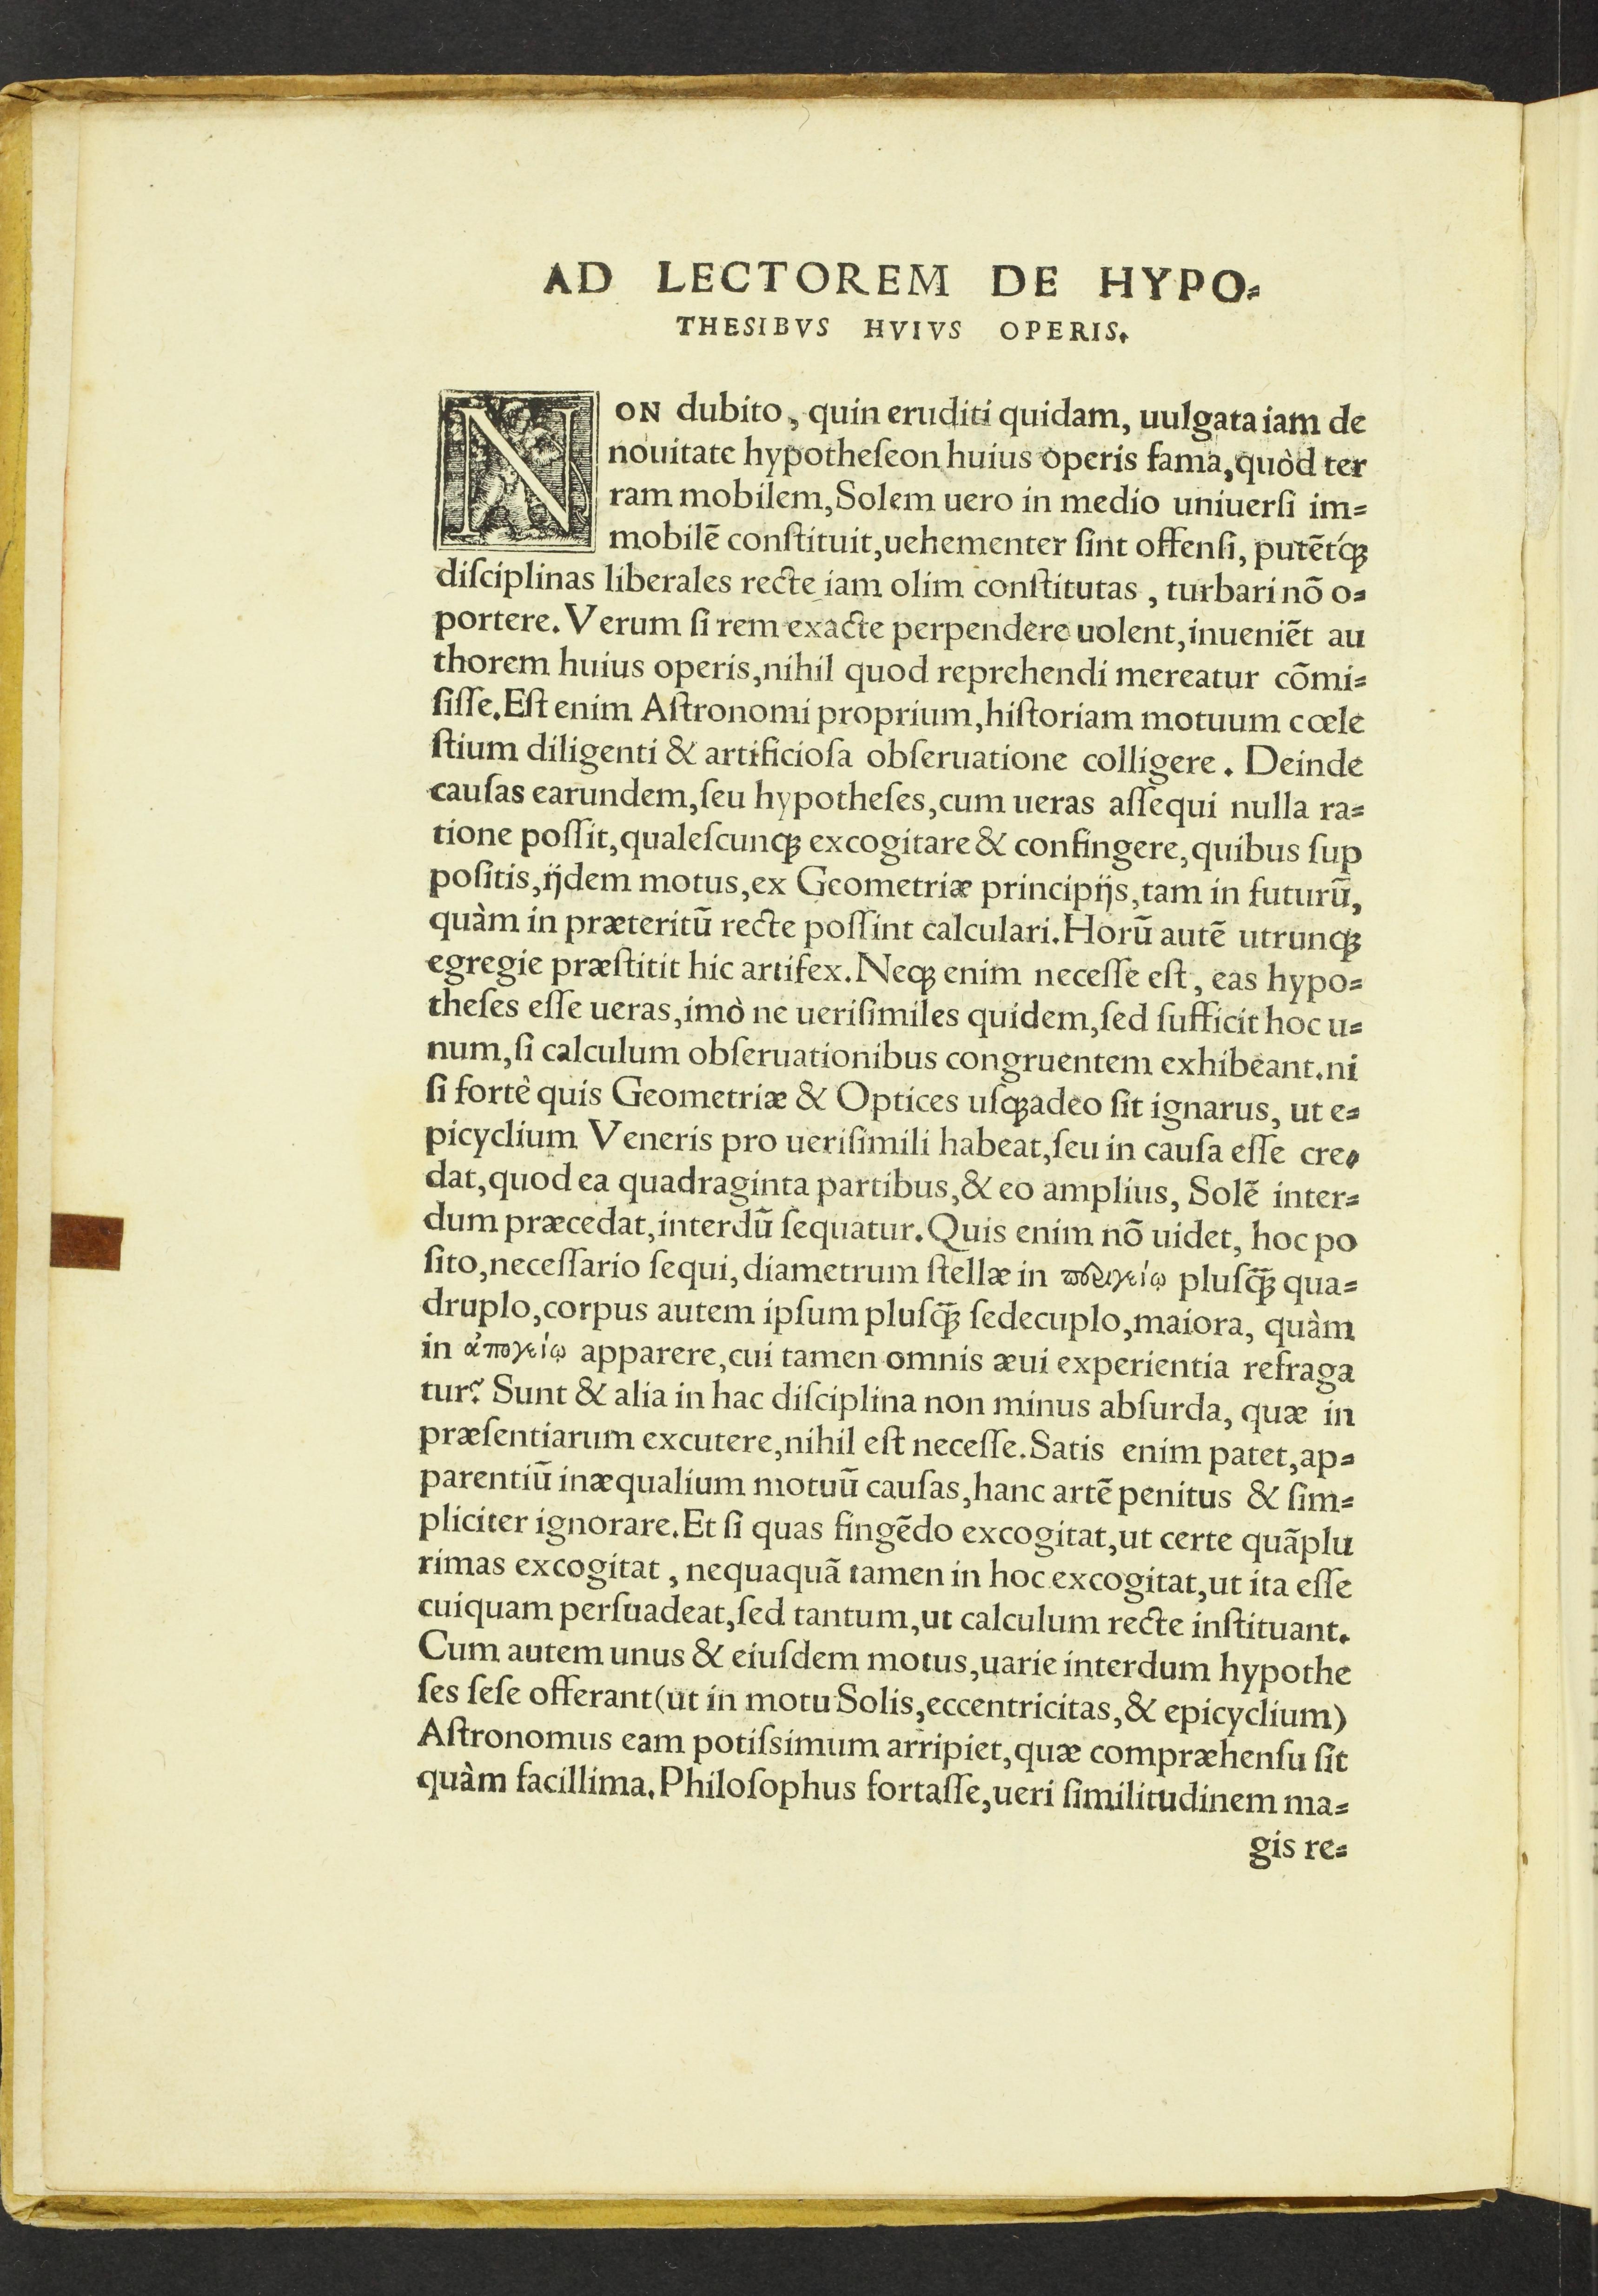 AD LECTOREM DE HYPO=
THESIBVS HVIVS OPERIS.
NON dubito, quin eruditi quidam, uulgata iam de
nouitate hypotheſeon huius operis fama, quòd ter
ram mobilem, Solem uero in medio uniuerſi im=
mobilē conſtituit, uehementer ſint offenſi, putēt́q̃
diſciplinas liberales recte iam olim conſtitutas, turbari nō o=
portere. Verum ſi rem exacte perpendere uolent, inueniēt au
thorem huius operis, nihil quod reprehendi mereatur cōmi=
ſiſſe. Eſt enim Aſtronomi proprium, hiſtoriam motuum cœle
ſtium diligenti & artificioſa obſeruatione colligere. Deinde
cauſas earundem, ſeu hypotheſes, cum ueras aſſequi nulla ra=
tione poſſit, qualeſcunq; excogitare & confingere, quibus ſup
poſitis, ijdem motus, ex Geometriæ principijs, tam in futurū,
quàm in præteritū recte poſſint calculari. Horū autē utrunq;
egregie præſtitit hic artifex. Neq; enim neceſſe eſt, eas hypo=
theſes eſſe ueras, imò ne ueriſimiles quidem, ſed ſufficit hoc u=
num, ſi calculum obſeruationibus congruentem exhibeant. ni
ſi fortè quis Geometriæ & Optices uſq;adeo ſit ignarus, ut e=
picyclium Veneris pro ueriſimili habeat, ſeu in cauſa eſſe cre=
dat, quod ea quadraginta partibus, & eo amplius, Solē inter=
dum præcedat, interdū ſequatur. Quis enim nō uidet, hoc po
ſito, neceſſario ſequi, diametrum ſtellæ in περιγείῳ pluſq̃; qua=
druplo, corpus autem ipſum pluſq̃; ſedecuplo, maiora, quàm
in ἀπογείῳ apparere, cui tamen omnis æui experientia refraga
tur? Sunt & alia in hac diſciplina non minus abſurda, quæ in
præſentiarum excutere, nihil eſt neceſſe. Satis enim patet, ap=
parentiū inæqualium motuū cauſas, hanc artē penitus & ſim=
pliciter ignorare. Et ſi quas fingēdo excogitat, ut certe quāplu
rimas excogitat, nequaquā tamen in hoc excogitat, ut ita eſſe
cuiquam perſuadeat, ſed tantum, ut calculum recte inſtituant.
Cum autem unus & eiuſdem motus, uarie interdum hypothe
ſes ſeſe offerant (ut in motu Solis, eccentricitas, & epicyclium)
Aſtronomus eam potiſsimum arripiet, quæ compræhenſu ſit
quàm facillima. Philoſophus fortaſſe, ueri ſimilitudinem ma=
gis re=